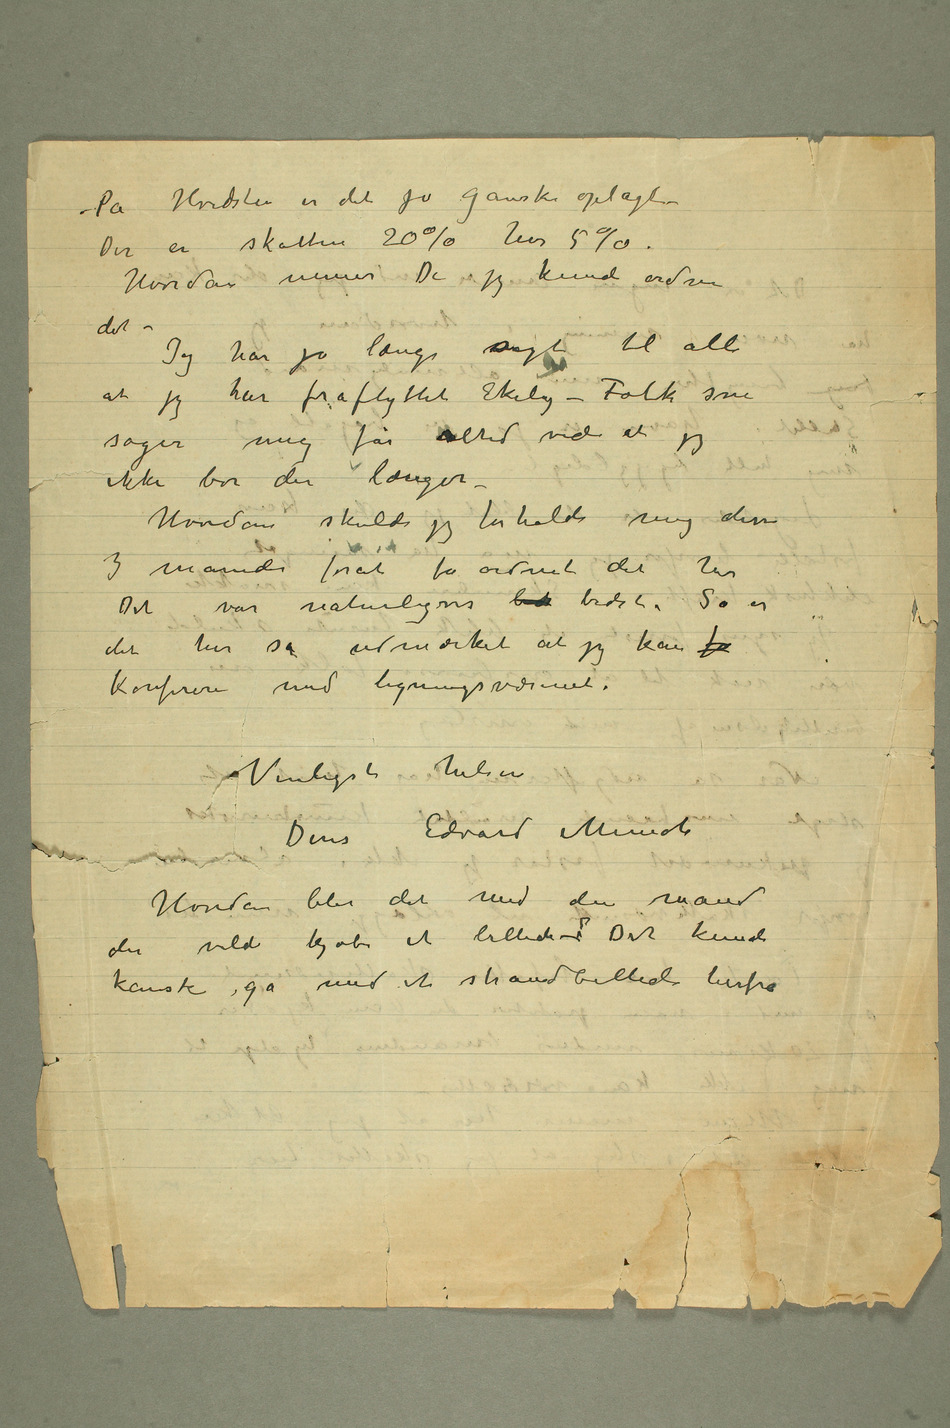 På Hvidsten er det jo ganske oplagt –
Der er skatten 20% her 5%.
Hvordan mener De jeg kunde ordne
det –
Jeg har jo længe sagt til alle
at jeg har fraflyttet Ekely – Folk som
søger mig får altid vide at jeg
ikke bor der længer –
Hvordan skulde jeg forholde mig disse
3 måneder forat få ordnet det her
Det var naturligvis bedst. Så er
det her så udmærket at jeg kan få
konferere med ligningsvæsenet.
Venligst hilsen
Deres Edvard Munch
Hvordan blir det med den mand
der vilde kjøbe et billede? Det kunde
kanske gå med et strandbillede herfra